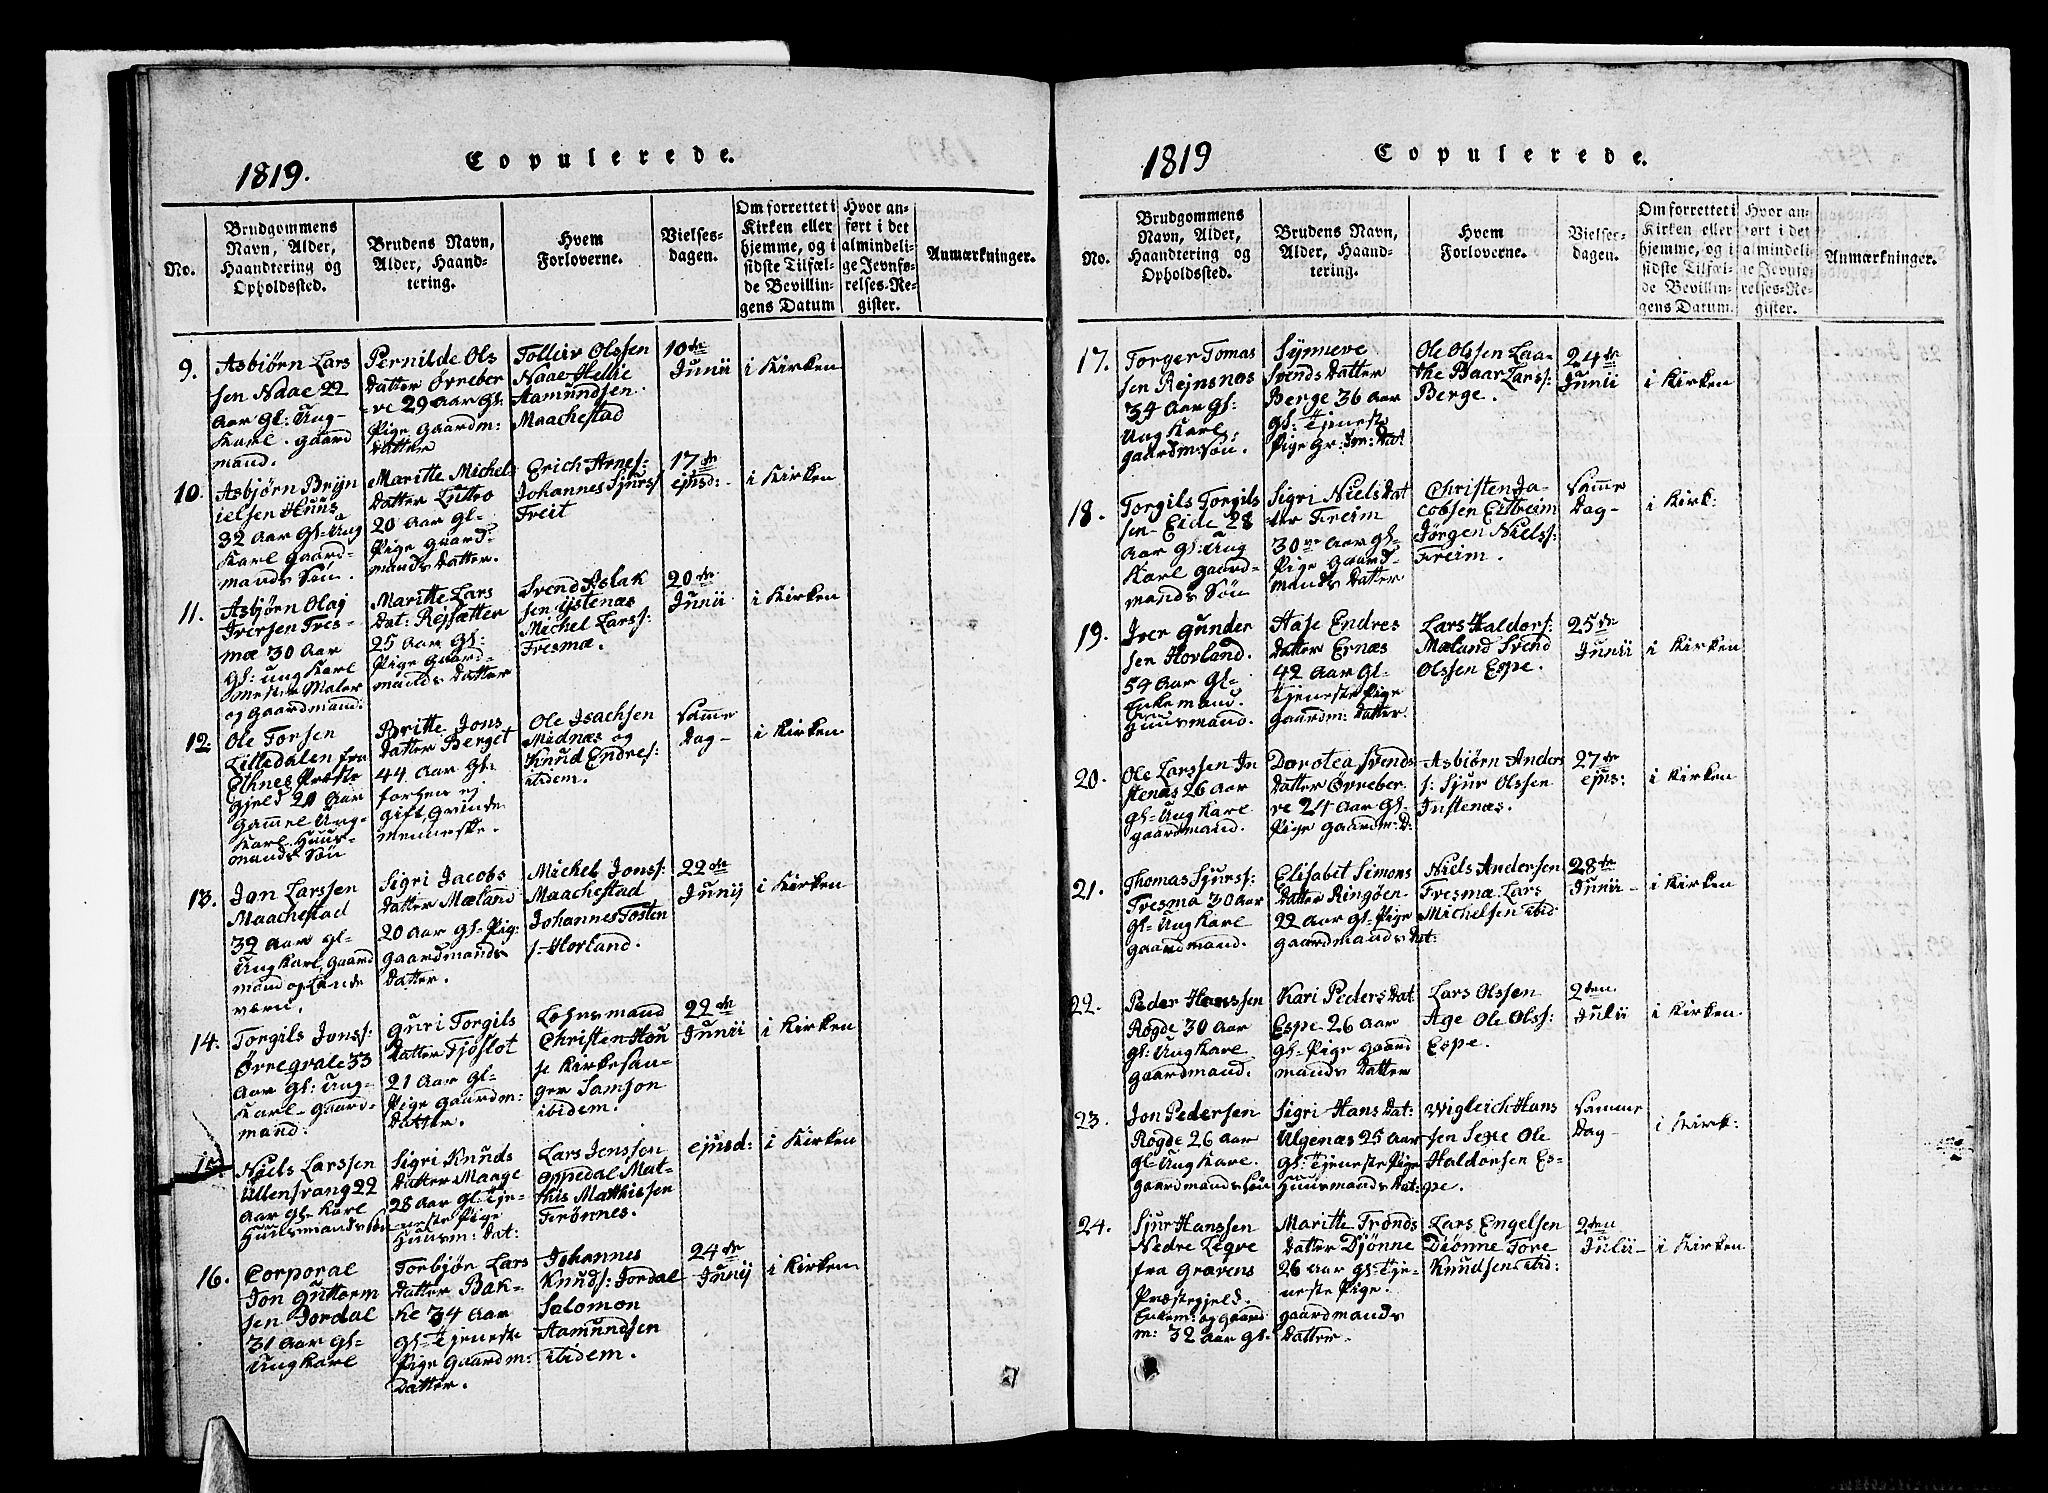 1819.
Copulerede.
No.
Brudgommens
Navn, Alder,
Haandtering og
Opholdssted.
Brudens Navn,
Alder, Haand-
tering.
Hvem
Forloverne.
Vielses-
dagen.
Om forrettet i
Kirken eller
hjemme, og i
sidste Tilfæl-
de Bevillin-
gens Datum
Hvor an-
ført i det
almindeli-
ge Jevnfø-
relses-Re-
gister.
Anmærkninger.
9.
Asbiørn Lars
sen Naae 22
Aar Gl: Ung-
Karl. Gaard
mand.
Pernilde Ols
Datter Ørreber
-ve 29 Aar Gl:
Pige Gaardm:
Datter
Tolleiv Olssen
Naae Hellie
Aamundsen
Maachestad
10de
Junii
i Kirken
10.
Asbjørn Brÿn
ielsen Huus
32 Aar Gl: Ung
Karl Gaard-
mands Søn.
Maritte Michels
Datter Lutro
20 Aar Gl-
Pige Gaard-
mands Datter.
Erich Arnes:
Johannes Sjurs
Freit
17de
ejusd:
i Kirken
11.
Asbjørn Olag
Iversen Tres-
mæ 30 Aar
Gl: Ung Karl
Mester Maler
og Gaardmand.
Maritte Lars
Dat: Rejsætter
25 Aar Gl:
Pige Gaard-
mands Datter
Svend Aslak
sen Ystenæs
Michel Larss:
Tresmæ.
20de
Junii
i Kirken
12.
Ole Torsen
Lilledalen fra
Ethnes Præste
gjeld 20 Aar
Gammel Ung-
Karl. Huus-
mands Søn
Britte Jons
Datter Berget
44 Aar Gl:
forhen ej
gift, Qvinde
menneske.
Ole Isachsen
Midnæs og
Knud Endres:
ibidem.
Samme
Dag-
i Kirken
13.
Jon Larssen
Maachestad
32 Aar Gl-
Ung Karl, Gaard
mand og Lande
værn.
Sigri Jacobs
Datter Mæland
20 Aar Gl-Pig:
Gaardmands
Datter.
Michel Jonss:
Maachestad
Johannes Tosten
s:-Hovland.
22de
Junij
i Kirken
14.
Torgils Jonss:
Ørregrale 33
Aar Gl: Ung-
Karl-Gaard-
mand.
Guri Torgils
Datter Tjøflot
21 Aar Gl-
Pige Gaardm:
Datter.
Lehnsmand
Christen Hou
se Kirkesan-
ger Samson
ibidem.
22de
Junii
i Kirken
15
Niels Larssen
Ullensvang 22
Aar Gl: Karl
Huusmands Søn
Sigri Knuds
Datter Maage
28 Aar Gl: Tje-
neste Pige
Huusm: Dat:
Lars Jenssen
Oppedal Mat-
this Matthissen
Frønnes.
ejusd:
i Kirken
16.
Corporal
Jon Guttorm
sen Jordal
31 Aar Gl-
Ung Karl
Torbjøn Lars
Datter Bak-
ke 34 Aar
Gl-Tjeneste
Pige Gaardm:
Datter.
Johannes
Knuds: Jordal
Salomon
Aamundsen
ibidem.
24de
Junij
i Kirken
1819
Copulerede.
No.
Brudgommens
Navn, Alder,
Haandtering og
Opholdssted.
Brudens Navn,
Alder, Haand-
tering.
Hvem
Forloverne.
Vielses-
dagen.
Om forrettet i
Kirken eller
hjemme, og i
sidste Tilfæl-
de Bevillin-
gens Datum.
Hvor an-
ført i det
almindeli-
ge Jevnfø-
relses-Re-
gister.
Anmærkninger.
17.
Torger Tomas
sen Rejnsnos
34 Aar Gl:
Ung Karl,
Gaardm: Søn.
Synneve
Svends Datter
Berge 36 Aar
Gl: Tjeneste
Pige Gr: Dat
Ole Olssen Laa-
the Baar Larss:
Berge.
24de
Junii
i Kirken
18.
Torgils Torgils
sen Eide 28
Aar Gl: Ung
Karl Gaard-
mands Søn
Sigri Niels Dat
ter Freim
30 Aar Gl-
Pige Gaard-
mands Datter
Christen Ja-
cobsen Eitreim
Jørgen Nielss:
Freim.
Samme
Dag-
i Kirk:
19.
Iver Gunder
sen Hovland.
54 Aar Gl-
Enkemand.
Huusmand.
Hase Endres
Datter Ernæs
42 Aar Gl-
Tjeneste Pige
Gaardm: Datter.
Lars Haldors:
Mæland Svend
Olssen Espe.
25de
Junii
i Kirken
20.
Ole Larssen In
stenæs 26 Aar
Gl-Ung Karl
Gaardmand.
Dorotea Svends
Datter Ørreber
ve 21 Aar Gl-
Pige Gaardm: D:
Asbiørn Anders
s: Sjur Olssen
Instenæs.
27de
ejus:
i Kirken
21.
Thomas Sjurss:
Tresmæ 30 Aar
Gl-Ung Karl
Gaardmand.
Elisabet Simons
Datter Ringøen
22 Aar Gl-Pige
Gaardmands Dat:
Niels Andersen
Tresmæ Lars
Michelsen ibid
28de
Junii-
i Kirken
22.
Peder Hanssen
Rogde 30 Aar
Gl: Ung Karl
Gaardmand.
Kari Peders Dat
Espe 26 Aar
Gl-Pige Gaard
mands Datter
Lars Olssen
Age Ole Olss:
Espe.
2den
Julii
i Kirken
23.
Jon Pedersen
Rogde 26 Aar
Gl-Ung Karl.
Gaardmands Søn
Sigri Hans Dat:
Ulgenæs 25 Aar
Gl: Tjeneste Pige
Huusmands Dat:
Wigleich Hans
sen Sexe Ole
Haldorsen Es-
pe.
Samme
Dag-
i Kirk:
24.
Sjur Hanssen
Nedre Legre
fra Gravens
Præstegjeld.
Enkem: og Gaard
m: 32 Aar Gl-
Maritte Tronds
Datter Djønne
26 Aar Gl-Tje-
neste Pige.
Gaardmands
Datter.
Lars Engelsen
Diønne Tore
Knudsen ibid:
2den
Julii-
i Kirken